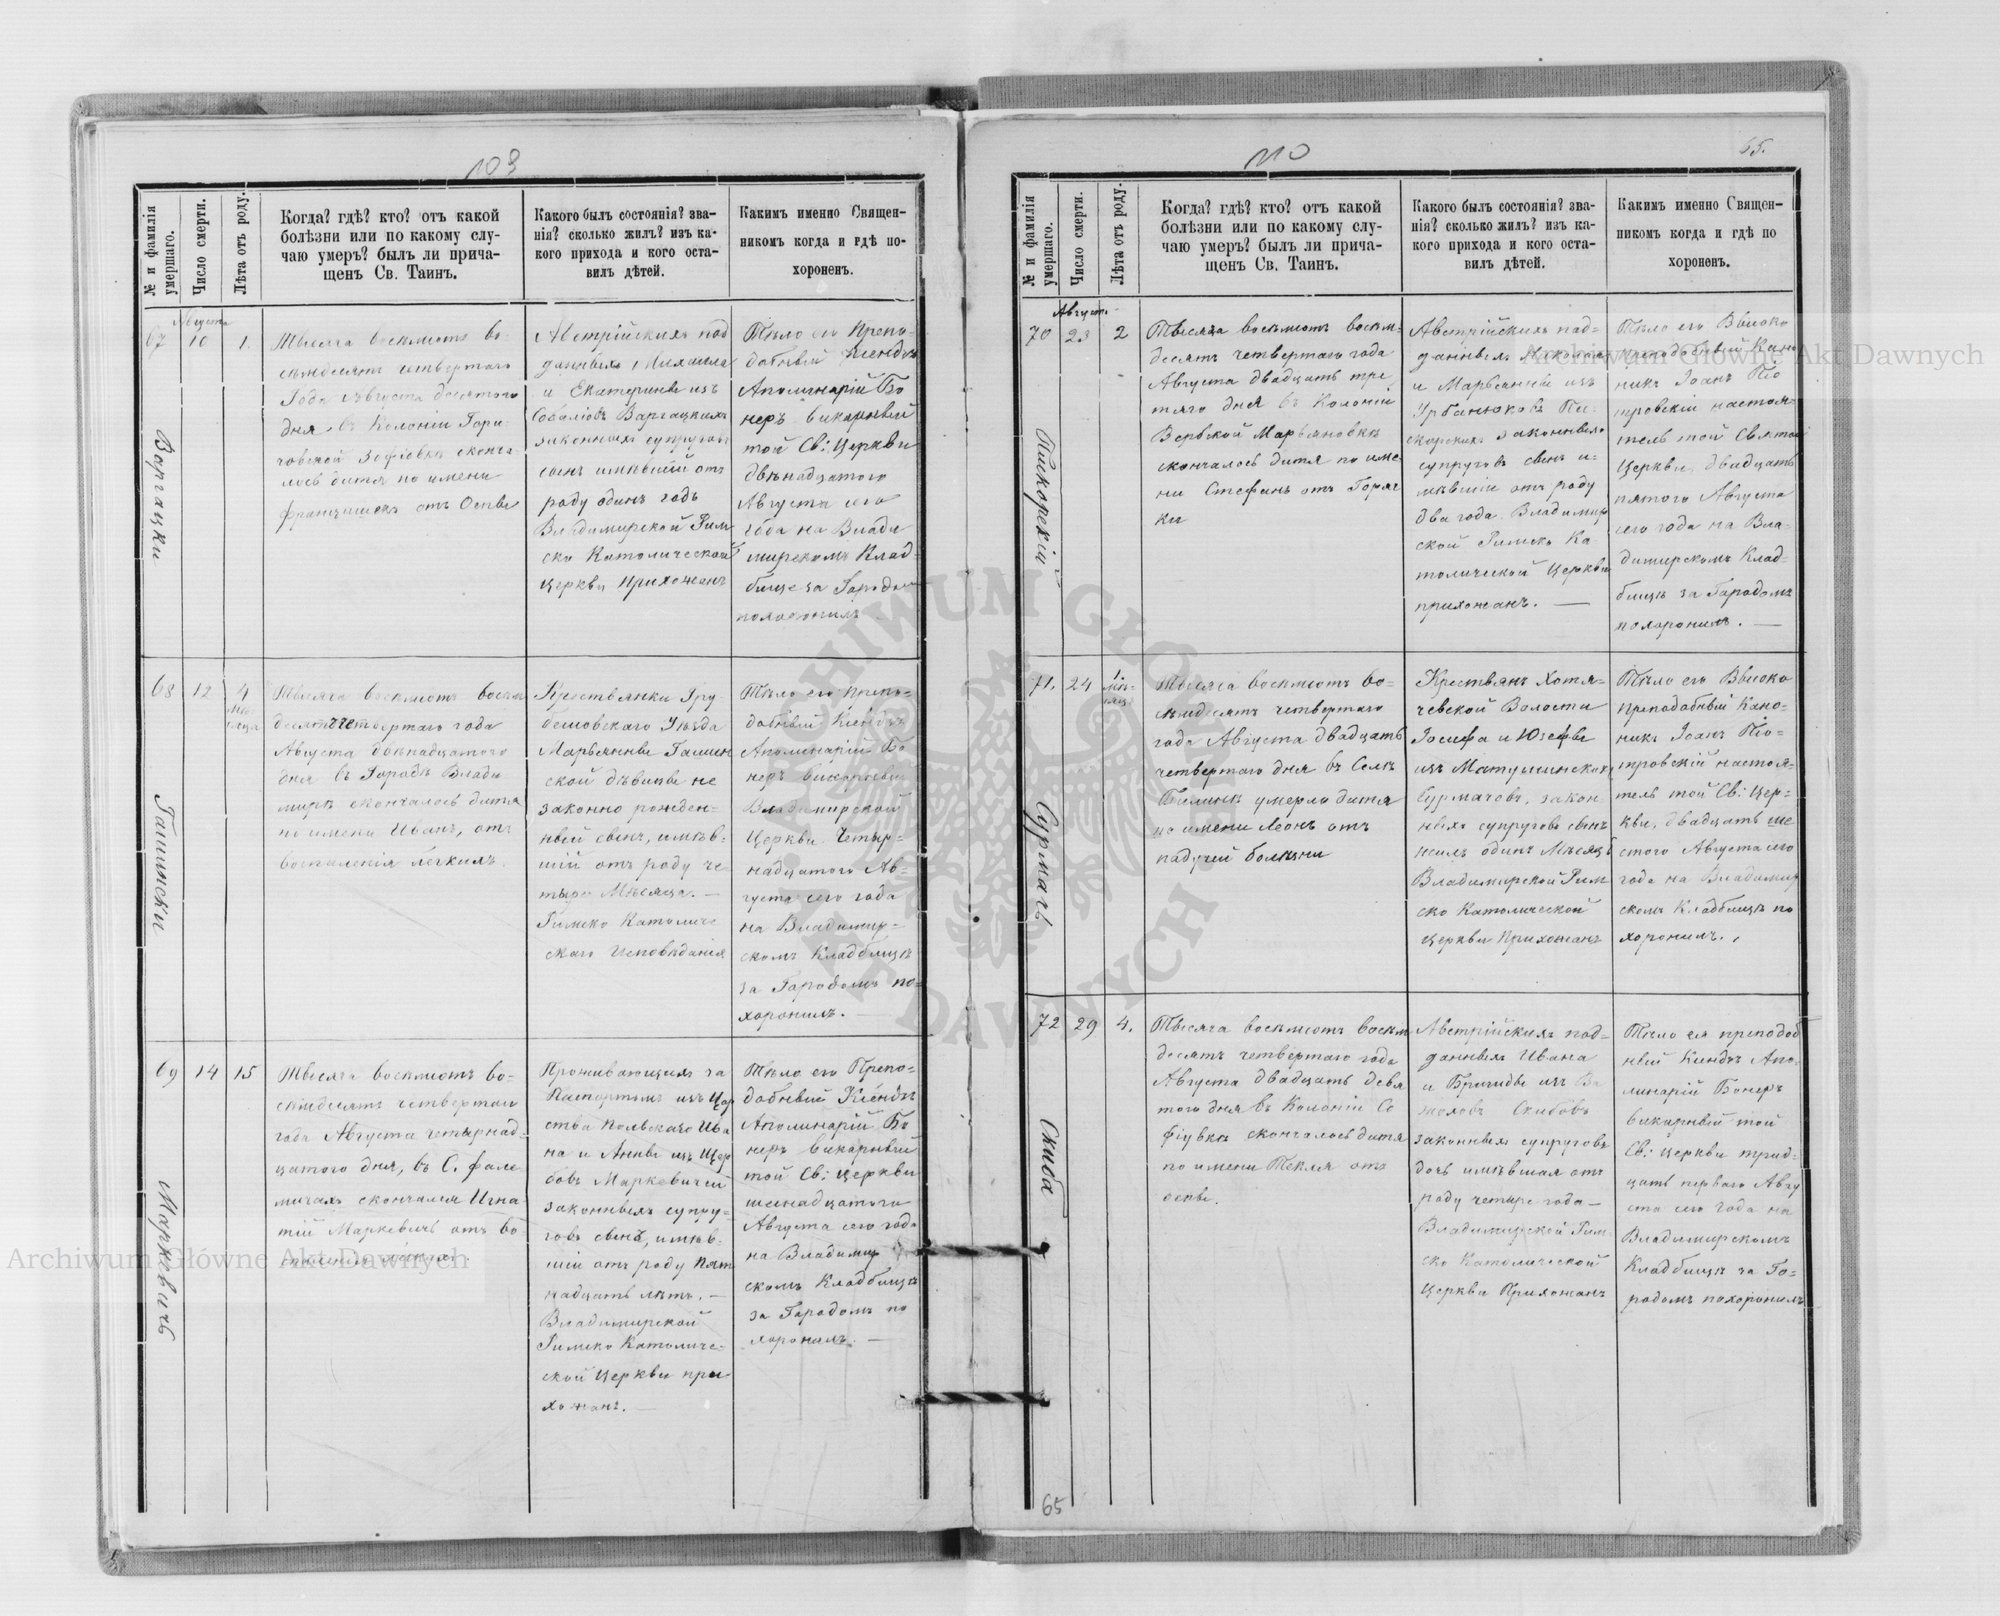 103
№ и фамилія умершаго.
Число смерти.
Лѣта отъ роду.
Когда? гдѣ? кто? отъ какой
болѣзни или по какому слу-
чаю умеръ? былъ ли прича-
щенъ Св. Таинъ.
Какого былъ состоянія? зва-
нія? сколько жилъ? изъ ка-
кого прихода и кого оста-
вилъ дѣтей.
Какимъ именно Священ-
никомъ когда и гдѣ по-
хороненъ.
67
Августа
10
1.
Тысяча восемьсотъ во-
семдесятъ четвертаго
Года Августа десятого
дня, въ Колоніи
скончa-
лось дитя по имени
Францишекъ отъ Оспы
Австрійскихъ под
данныхъ Михаила
и Екатерины изъ
законныхъ супруговъ
сынъ имѣвшій отъ
роду одинъ годъ
Владимирской Рим
ско Католической
Церкви Прихожанъ
Тѣло его Препо-
добный Ксендзъ
Аполинарій Бо
неръ викарный
той Св: Церкви
двѣнадцатого
Августа сего
года на Влади
мирскомъ Клад-
бище за Городомъ
похоронилъ
68
12
4
Мѣ-
сяца
Тысяча восемьсотъ восем
десятъ четвертаго года
Августа двѣнадцатого
дня въ Городѣ Влади
мирѣ скончалось дитя
по имени Иванъ, отъ
воспаленія легкихъ.
Крестьянки Гру-
бешовскаго Уѣзда
Марьянны Галин
ской дѣвицы не
законно рожден-
ный сынъ, имѣв-
шій отъ роду че
тыре Мѣсяца. —
Римско Католиче
скаго Исповѣданія
Тѣло его Препо-
добный Ксендзъ
Аполинарій Бо
неръ викарный
Владимирской
Церкви Четыр-
надцатого Ав-
густа сего года
на Владимир-
скомъ Кладбищѣ
за Городомъ по-
хоронилъ. —
69
14
15
Маркевичъ
Тысяча восемьсотъ во-
семдесятъ четвертаго
года Августа четырнад
цатого дня, въ С.
скончался Игна
тій Маркевичъ отъ во-
Проживающихъ за
Паспортомъ изъ Цар
ства Польскаго Ива
на и Анны изъ Щер
бовъ Маркевичей
законныхъ супру-
говъ сынъ, имѣв-
шій отъ роду Пят
надцать лѣтъ. —
Владимирской
Римско Католиче-
ской Церкви при
хожанъ. —
Тѣло его Препо-
добный Ксендзъ
Аполинарій Бо
неръ викарный
той Св: Церкви
Августа сего года
на Владимир
скомъ Кладбищѣ
за Городомъ по
хоронилъ. —
110
65.
№ и фамилія умершаго.
Число смерти.
Лѣта отъ роду.
Когда? гдѣ? кто? отъ какой
болѣзни или по какому слу-
чаю умеръ? былъ ли прича-
щенъ Св. Таинъ.
Какого былъ состоянія? зва-
нія? сколько жилъ? изъ ка-
кого прихода и кого оста-
вилъ дѣтей.
Какимъ именно Священ-
никомъ когда и гдѣ по
хороненъ.
70
Августа
23
2
Пискорскій
Тысяча восемьсотъ восем-
десятъ четвертаго года
Августа двадцать тре
тяго дня въ Колоніи
Вербской Марьяновкѣ
скончалось дитя по име-
ни Стефанъ отъ Горяч
ки
Австрійскихъ под-
данныхъ
и Марьянны изъ
Урбанюковъ Пи-
скорскихъ законныхъ
супруговъ сынъ и-
мѣвшій отъ роду
два года. Владимир
ской Римско Ка
толической Церкви
прихожанъ. —
Тѣло его Высоко
преподобный Кано
никъ Іоанъ Піо
тровскій настоя-
тель той Святой
Церкви, двадцать
пятого Августа
сего года на Вла-
димирскомъ Клад-
бищѣ за Городомъ
похоронилъ. —
71.
24
1.
мѣ-
сяц.
Сурмачъ
Тысяча восемьсотъ во-
семдесятъ четвертаго
года Августа двадцать
четвертаго дня въ Селѣ
умерло дитя
по имени Леонъ отъ
падучей болѣзни
Крестьянъ Хотя-
чевской Волости
Іосифа и Юзефы
изъ Матушинскихъ
Сурмачовъ, закон-
ныхъ супруговъ сынъ
жилъ одинъ Мѣсяцъ
Владимирской Рим
ско Католической
Церкви Прихожанъ
Тѣло его Высоко
Преподобный Кано-
никъ Іоанъ Піо-
тровскій настоя-
тель той Св: Цер-
кви, двадцать ше
стого Августа сего
года на Владимир
скомъ Кладбищѣ по
хоронилъ.
72
29
4.
Скиба
Тысяча восемьсотъ восем
десятъ четвертаго года
Августа двадцать девя
того дня въ Колоніи Со
фіувкѣ скончалось дитя
по имени Текля отъ
оспы.
Австрійскихъ под-
данныхъ Ивана
и Бригиды изъ
Скибовъ
законныхъ супруговъ
дочь имѣвшая отъ
роду четыре года —
Владимирской Рим
ско Католической
Церкви Прихожанъ
Тѣло ея преподоб
ный Ксендзъ Апо-
линарій Бонеръ
викарный той
Св: Церкви трид-
цать перваго Авгу
ста сего года на
Владимирскомъ
Кладбищѣ за Го-
родомъ похоронилъ
65
Archiwum Główne Akt Dawnych
Archiwum Główne Akt Dawnych
ARCHIWUM GŁÓWNE AKT DAWNYCH